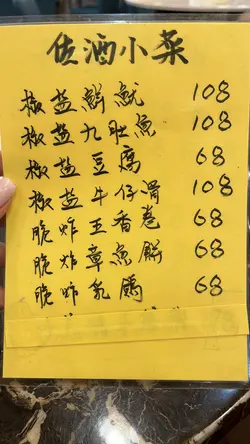 佐酒小菜
椒盐鮮魷 108
椒盐九肚魚 108
椒盐豆腐 68
椒盐牛仔骨 108
脆炸五香卷 68
脆炸章魚餅 68
脆炸乳鴿 68